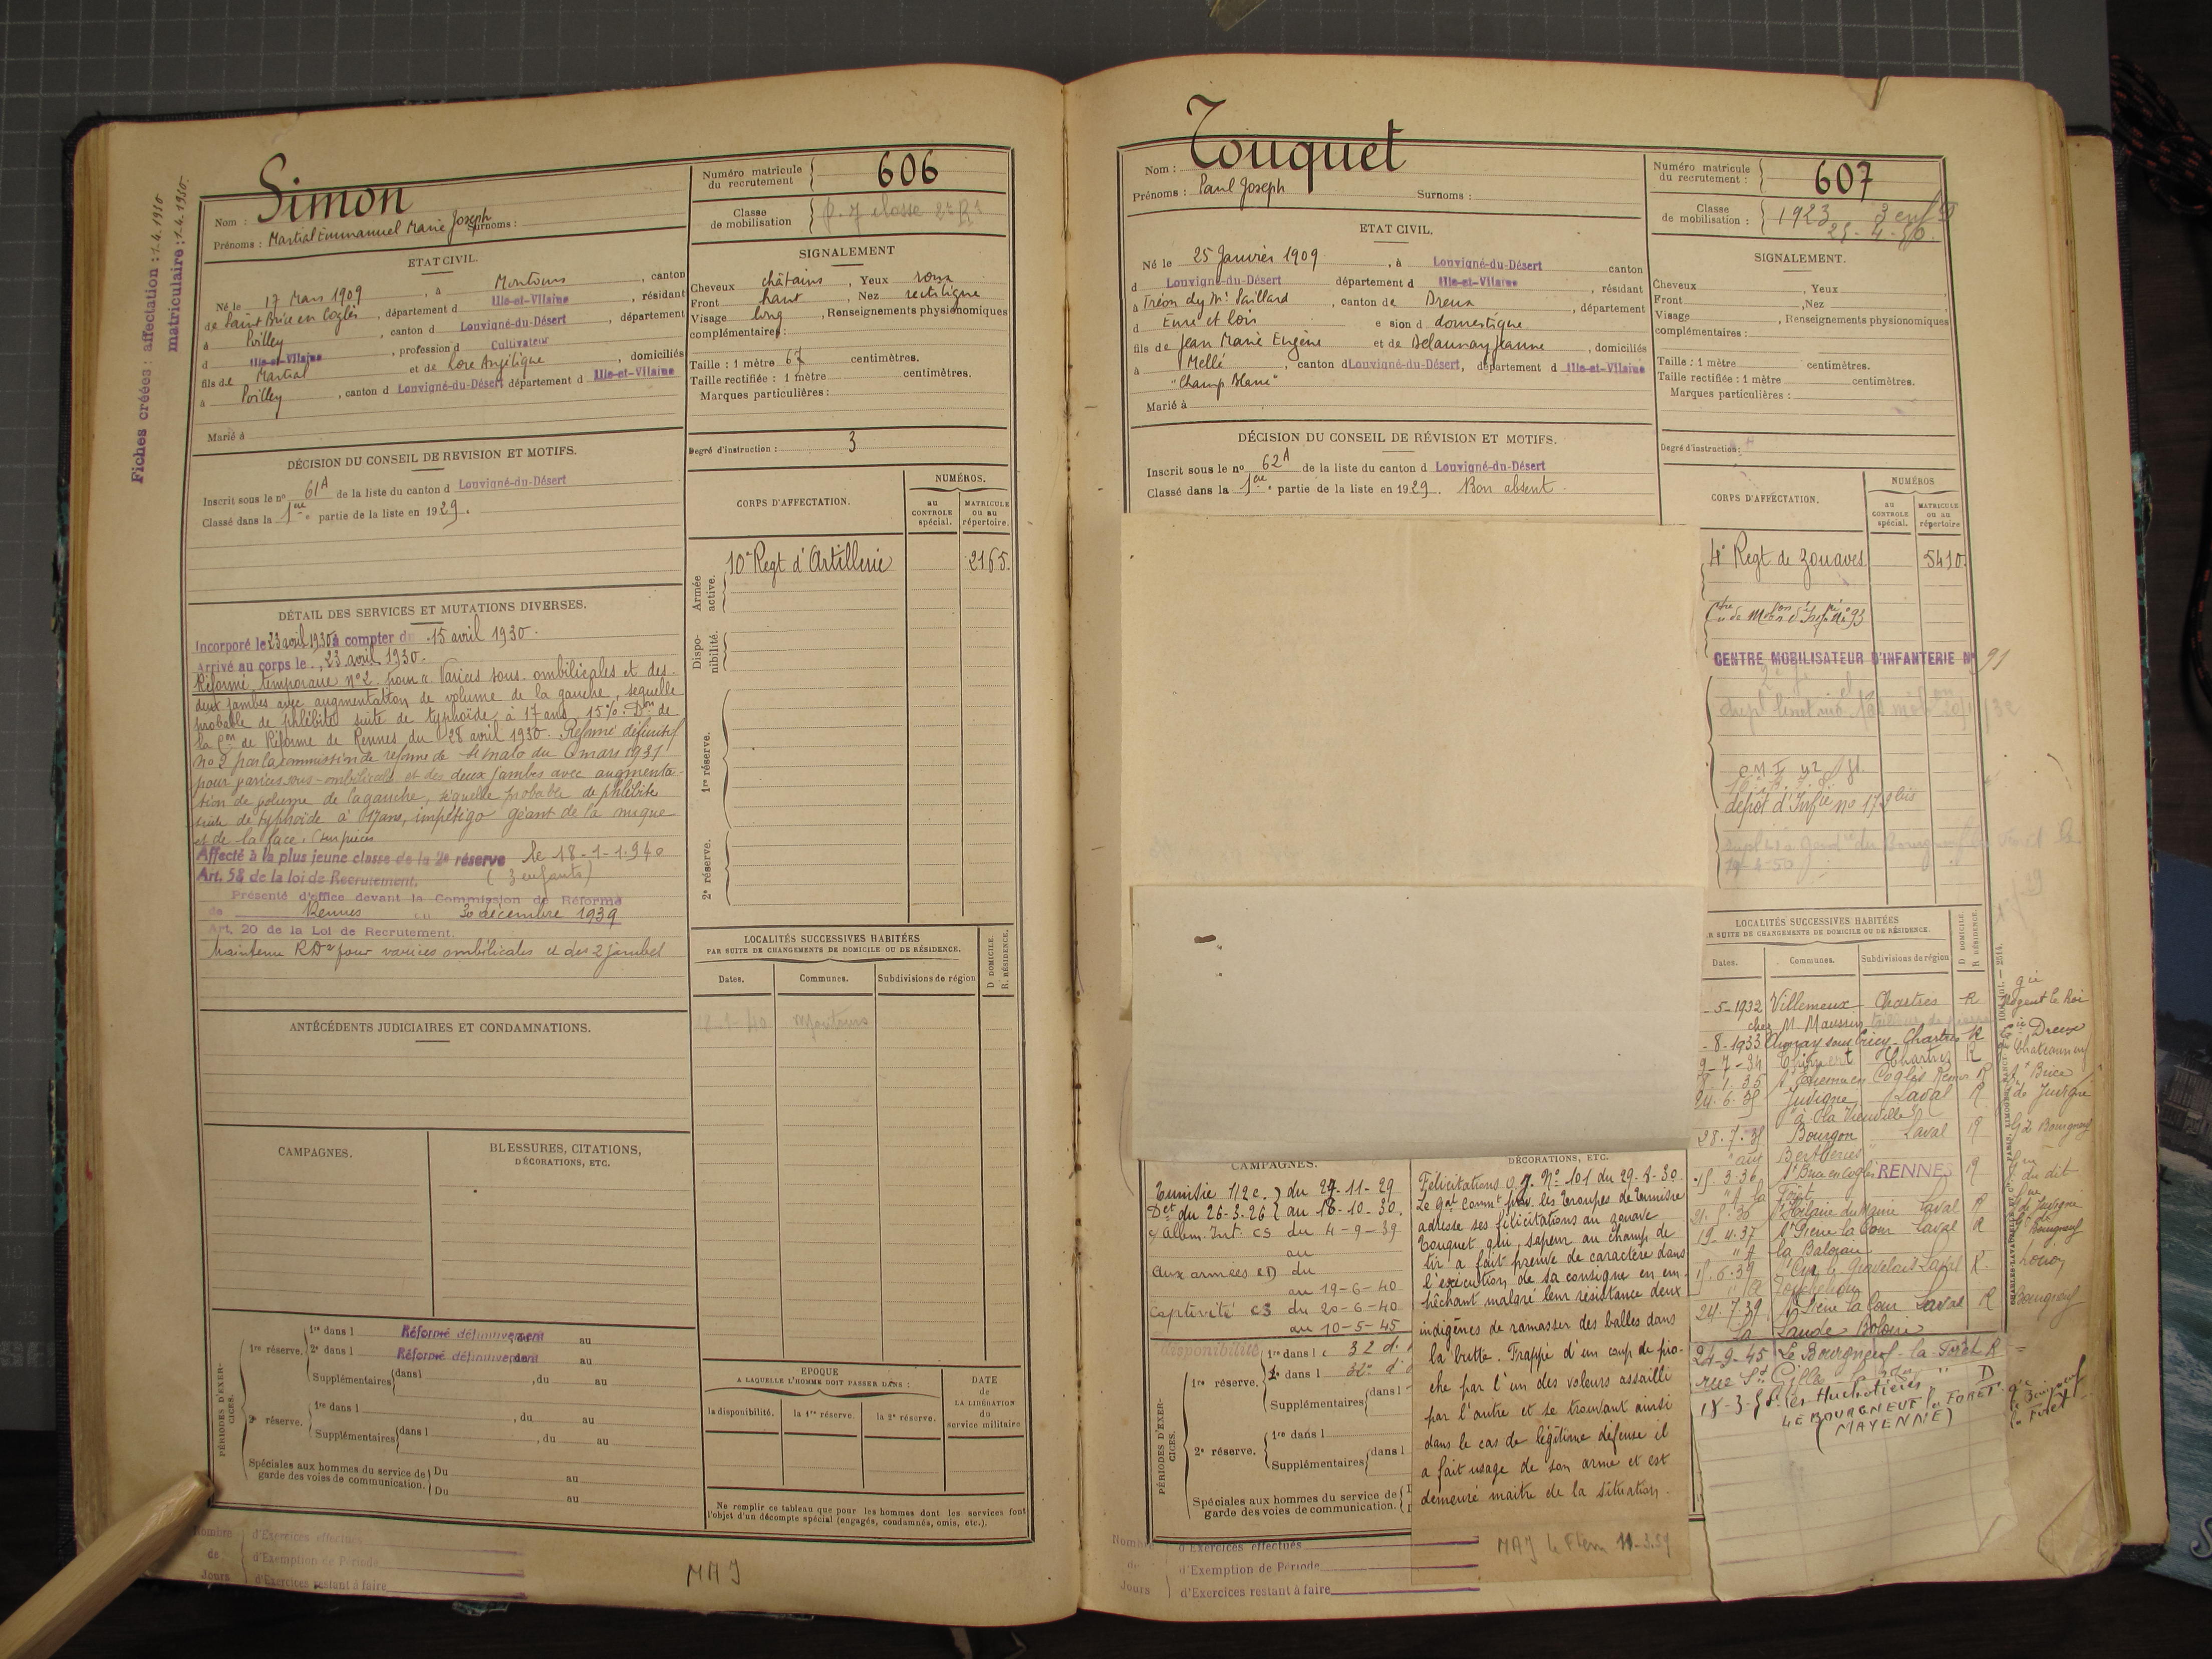 Fiches créées : affectation : 1.4.1930
matriculaire : 1-4.1930.
Nom : Simon
Prénoms : Martial Emmanuel Marie Joseph Surnoms :
Numéro matricule du recrutement : 606
Classe de mobilisation
ETAT CIVIL.
Né le 17 Mars 1909, à Montours, canton
de Saint Brice en Coglès, département d Ille-et-Vilaine, résidant
à Poilley, canton d Louvigné-du-Désert, département
d Ille-et-Vilaine, profession d Cultivateur
fils de Martial et de Lore Angélique, domiciliés
à Poilley, canton d Louvigné-du-Désert département d Ille-et-Vilaine
Marié à
SIGNALEMENT
Cheveux châtains, Yeux roux
Front haut, Nez rectiligne
Visage long, Renseignements physionomiques
complémentaires :
Taille : 1 mètre 67 centimètres.
Taille rectifiée : 1 mètre centimètres.
Marques particulières :
Degré d'instruction : 3
DÉCISION DU CONSEIL DE REVISION ET MOTIFS.
Inscrit sous le n° 61A de la liste du canton d Louvigné-du-Désert
Classé dans la 1ère partie de la liste en 1929.
CORPS D'AFFECTATION.
NUMÉROS.
au CONTROLE spécial.
MATRICULE ou au répertoire.
Armée active.
10e Regt d'Artillerie 2165.
Disponibilité.
1re réserve.
2e réserve.
DÉTAIL DES SERVICES ET MUTATIONS DIVERSES.
Incorporé le 23 avril 1930 à compter du 15 avril 1930.
Arrivé au corps le 23 avril 1930.
Réformé temporaire n°2 pour "Varices sous-ombilicales et des
deux jambes avec augmentation de volume de la gauche, sequelle
probable de phlébite suite de typhoïde à 17 ans, 15%. Don de
la Con de Réforme de Rennes du 28 avril 1930. Réformé définitif
no 2 par la commission de réforme de St Malo du 6 mars 1931
pour varices sous-ombilicales et des deux jambes avec augmenta-
tion de volume de la gauche, séquelle probable de phlébite
suite de typhoïde à 17 ans, impétigo géant de la nuque
et de la face. (sur pièces
Affecté à la plus jeune classe de la 2e réserve le 18-1-1940
Art. 58 de la loi de Recrutement. (3 enfants)
Présenté d'office devant la Commission de Réforme
de Rennes du 30 décembre 1939
Art. 20 de la Loi de Recrutement.
Maintenu RD2 pour varices ombilicales et des 2 jambes
LOCALITÉS SUCCESSIVES HABITÉES
PAR SUITE DE CHANGEMENTS DE DOMICILE OU DE RÉSIDENCE.
D. DOMICILE.
R. RÉSIDENCE.
Dates. Communes. Subdivisions de région
18-1-40 Montours
ANTÉCÉDENTS JUDICIAIRES ET CONDAMNATIONS.
CAMPAGNES.
BLESSURES, CITATIONS,
DÉCORATIONS, ETC.
PÉRIODES D'EXERCICES.
1re réserve. 1re dans l Réformé définitivement au
2e dans l Réformé définitivement au
Supplémentaires dans l, du au
2e réserve. 1re dans l, du au
Supplémentaires dans l, du au
Spéciales aux hommes du service de garde des voies de communication. Du au
Du au
EPOQUE
A LAQUELLE L'HOMME DOIT PASSER DANS :
la disponibilité. la 1re réserve. la 2e réserve.
DATE de LA LIBÉRATION du service militaire
Ne remplir ce tableau que pour les hommes dont les services font
l'objet d'un décompte spécial (engagés, condamnés, omis, etc.).
Nombre de Jours
d'Exercices effectués
d'Exemption de Période
d'Exercices restant à faire
MAJ
Nom : Touquet
Prénoms : Paul Joseph Surnoms :
Numéro matricule du recrutement : 607
Classe de mobilisation : 1923 3 enfts
ETAT CIVIL.
Né le 25 Janvier 1909, à Louvigné-du-Désert canton
d Louvigné-du-Désert département d Ille-et-Vilaine, résidant
à Tréon chez Mr Paillard, canton de Dreux, département
d Eure et Loir e sion d domestique
fils de Jean Marie Eugène et de Delaunay Jeanne, domiciliés
à Mellé, canton d Louvigné-du-Désert, département d Ille-et-Vilaine
"Champ Blanc"
Marié à
SIGNALEMENT.
Cheveux, Yeux
Front, Nez
Visage, Renseignements physionomiques
complémentaires :
Taille : 1 mètre centimètres.
Taille rectifiée : 1 mètre centimètres.
Marques particulières :
Degré d'instruction :
DÉCISION DU CONSEIL DE RÉVISION ET MOTIFS.
Inscrit sous le no 62A de la liste du canton d Louvigné-du-Désert
Classé dans la 1ère partie de la liste en 1929. Bon absent.
CORPS D'AFFECTATION.
NUMÉROS
au CONTROLE spécial.
MATRICULE ou au répertoire
4e Regt de Zouaves 5410.
Ctre de Mobon d'Infrie no 93
CENTRE MOBILISATEUR D'INFANTERIE N° 91
dépôt d'Infie no 173 bis
LOCALITÉS SUCCESSIVES HABITÉES
R SUITE DE CHANGEMENTS DE DOMICILE OU DE RÉSIDENCE.
D DOMICILE.
R RÉSIDENCE.
Dates. Communes. Subdivisions de région
-5-1932 Villemeux Chartres R Nogent le Roi
chez M. Maussin
-8-1933 Aunay sous Crécy Chartres R Gie Dreux
9-7-34 Chartres R Chateauneuf
8.1.35 Coglès Rennes R St Brice
24.6.35 Juvigné Laval R de Juvigné
"à la Vieuville"
28.7.35 Bourgon Laval R Gie Bourgneuf
3.36 St Brice en Coglès RENNES R
St Hilaire du Maine Laval R
19.4.37 St Pierre la Cour Laval R Bourgneuf
6.39 le Gravelais Laval R.
24.7.39 St Pierre la Cour Laval R Bourgneuf
La Lande
24-9-45 Le Bourgneuf-la-Forêt R
rue St Gilles
18-3- les Huchotières " D
LE BOURGNEUF la FORET
(MAYENNE)
CAMPAGNES.
Tunisie 1/2 c. du 27-11-29
Det du 26-3-26 au 18-10-30.
c/ Allem. Int. CS du 4-9-39
au
Aux armées CD du
au 19-6-40
Captivité CS du 20-6-40
au 10-5-45
DÉCORATIONS, ETC.
Félicitations O.G. N° 101 du 29-8-30
Le Gal Commt prov. les Troupes de Tunisie
adresse ses félicitations au zouave
Touquet qui, sapeur au champ de
tir a fait preuve de caractère dans
l'exécution de sa consigne en em-
pêchant malgré leur résistance deux
indigènes de ramasser des balles dans
la butte. Frappé d'un coup de pio-
che par l'un des voleurs assailli
par l'autre et se trouvant ainsi
dans le cas de légitime défense il
a fait usage de son arme et est
demeuré maître de la situation.
MAJ
disponibilité
PÉRIODES D'EXERCICES.
1re réserve. 1re dans l
dans l
Supplémentaires dans l
2e réserve. 1re dans l
Supplémentaires dans l
Spéciales aux hommes du service de
garde des voies de communication.
Nombre de Jours
d'Exercices effectués
d'Exemption de Période
d'Exercices restant à faire